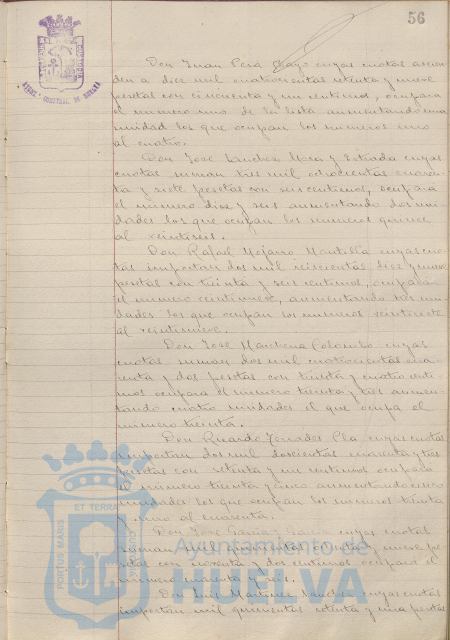 56
Don Juan Pera Bayo cuyas cuotas ascien
den a diez mil cuatrocientas setenta y nueve
pesetas con cincuenta y un centimos, ocupara
el numero uno de la lista aumentando una
unidad los que ocupan los numeros uno
al cuatro.
Don Jose Sanchez Mora y Estrada cuyas
cuotas suman tres mil ochocientas cuaren
ta y siete pesetas con seis centimos, ocupara
el numero diez y seis aumentando dos uni
dades los que ocupan los numeros quince
al veintiseis.
Don Rafael Mojarro Mantilla cuyas cuo
tas importan dos mil seiscientas diez y nueve
pesetas con treinta y seis centimos, ocupara
el numero veintinueve, aumentando tres uni
dades los que ocupan los numeros veintisiete
al veintinueve.
Don Jose Marchena Colombo cuyas
cuotas suman dos mil cuatrocientas cua
renta y dos pesetas con treinta y cuatro centi
mos ocupara el numero treinta y tres aumen
tando cuatro unidades el que ocupa el
numero treinta.
Don Ricardo Terrades Pla cuyas cuotas
importan dos mil doscientas cuarenta y tres
pesetas con setenta y un centimos ocupara
el numero treinta y cinco aumentando cinco
unidades los que ocupan los numeros treinta
y uno al cuarenta.
Don Jose Garcia y Garcia cuyas cuotas
suman mil y nueve pe
setas con noventa y dos centimos ocupara el
numero cuarenta y seis.
Don Luis Martinez Sanchez cuyas cuotas
importan mil quinientas setenta y una pesetas
ET TERRAE
PORTUS MARIS
CUSTODIA
Ayuntamiento de
HUELVA